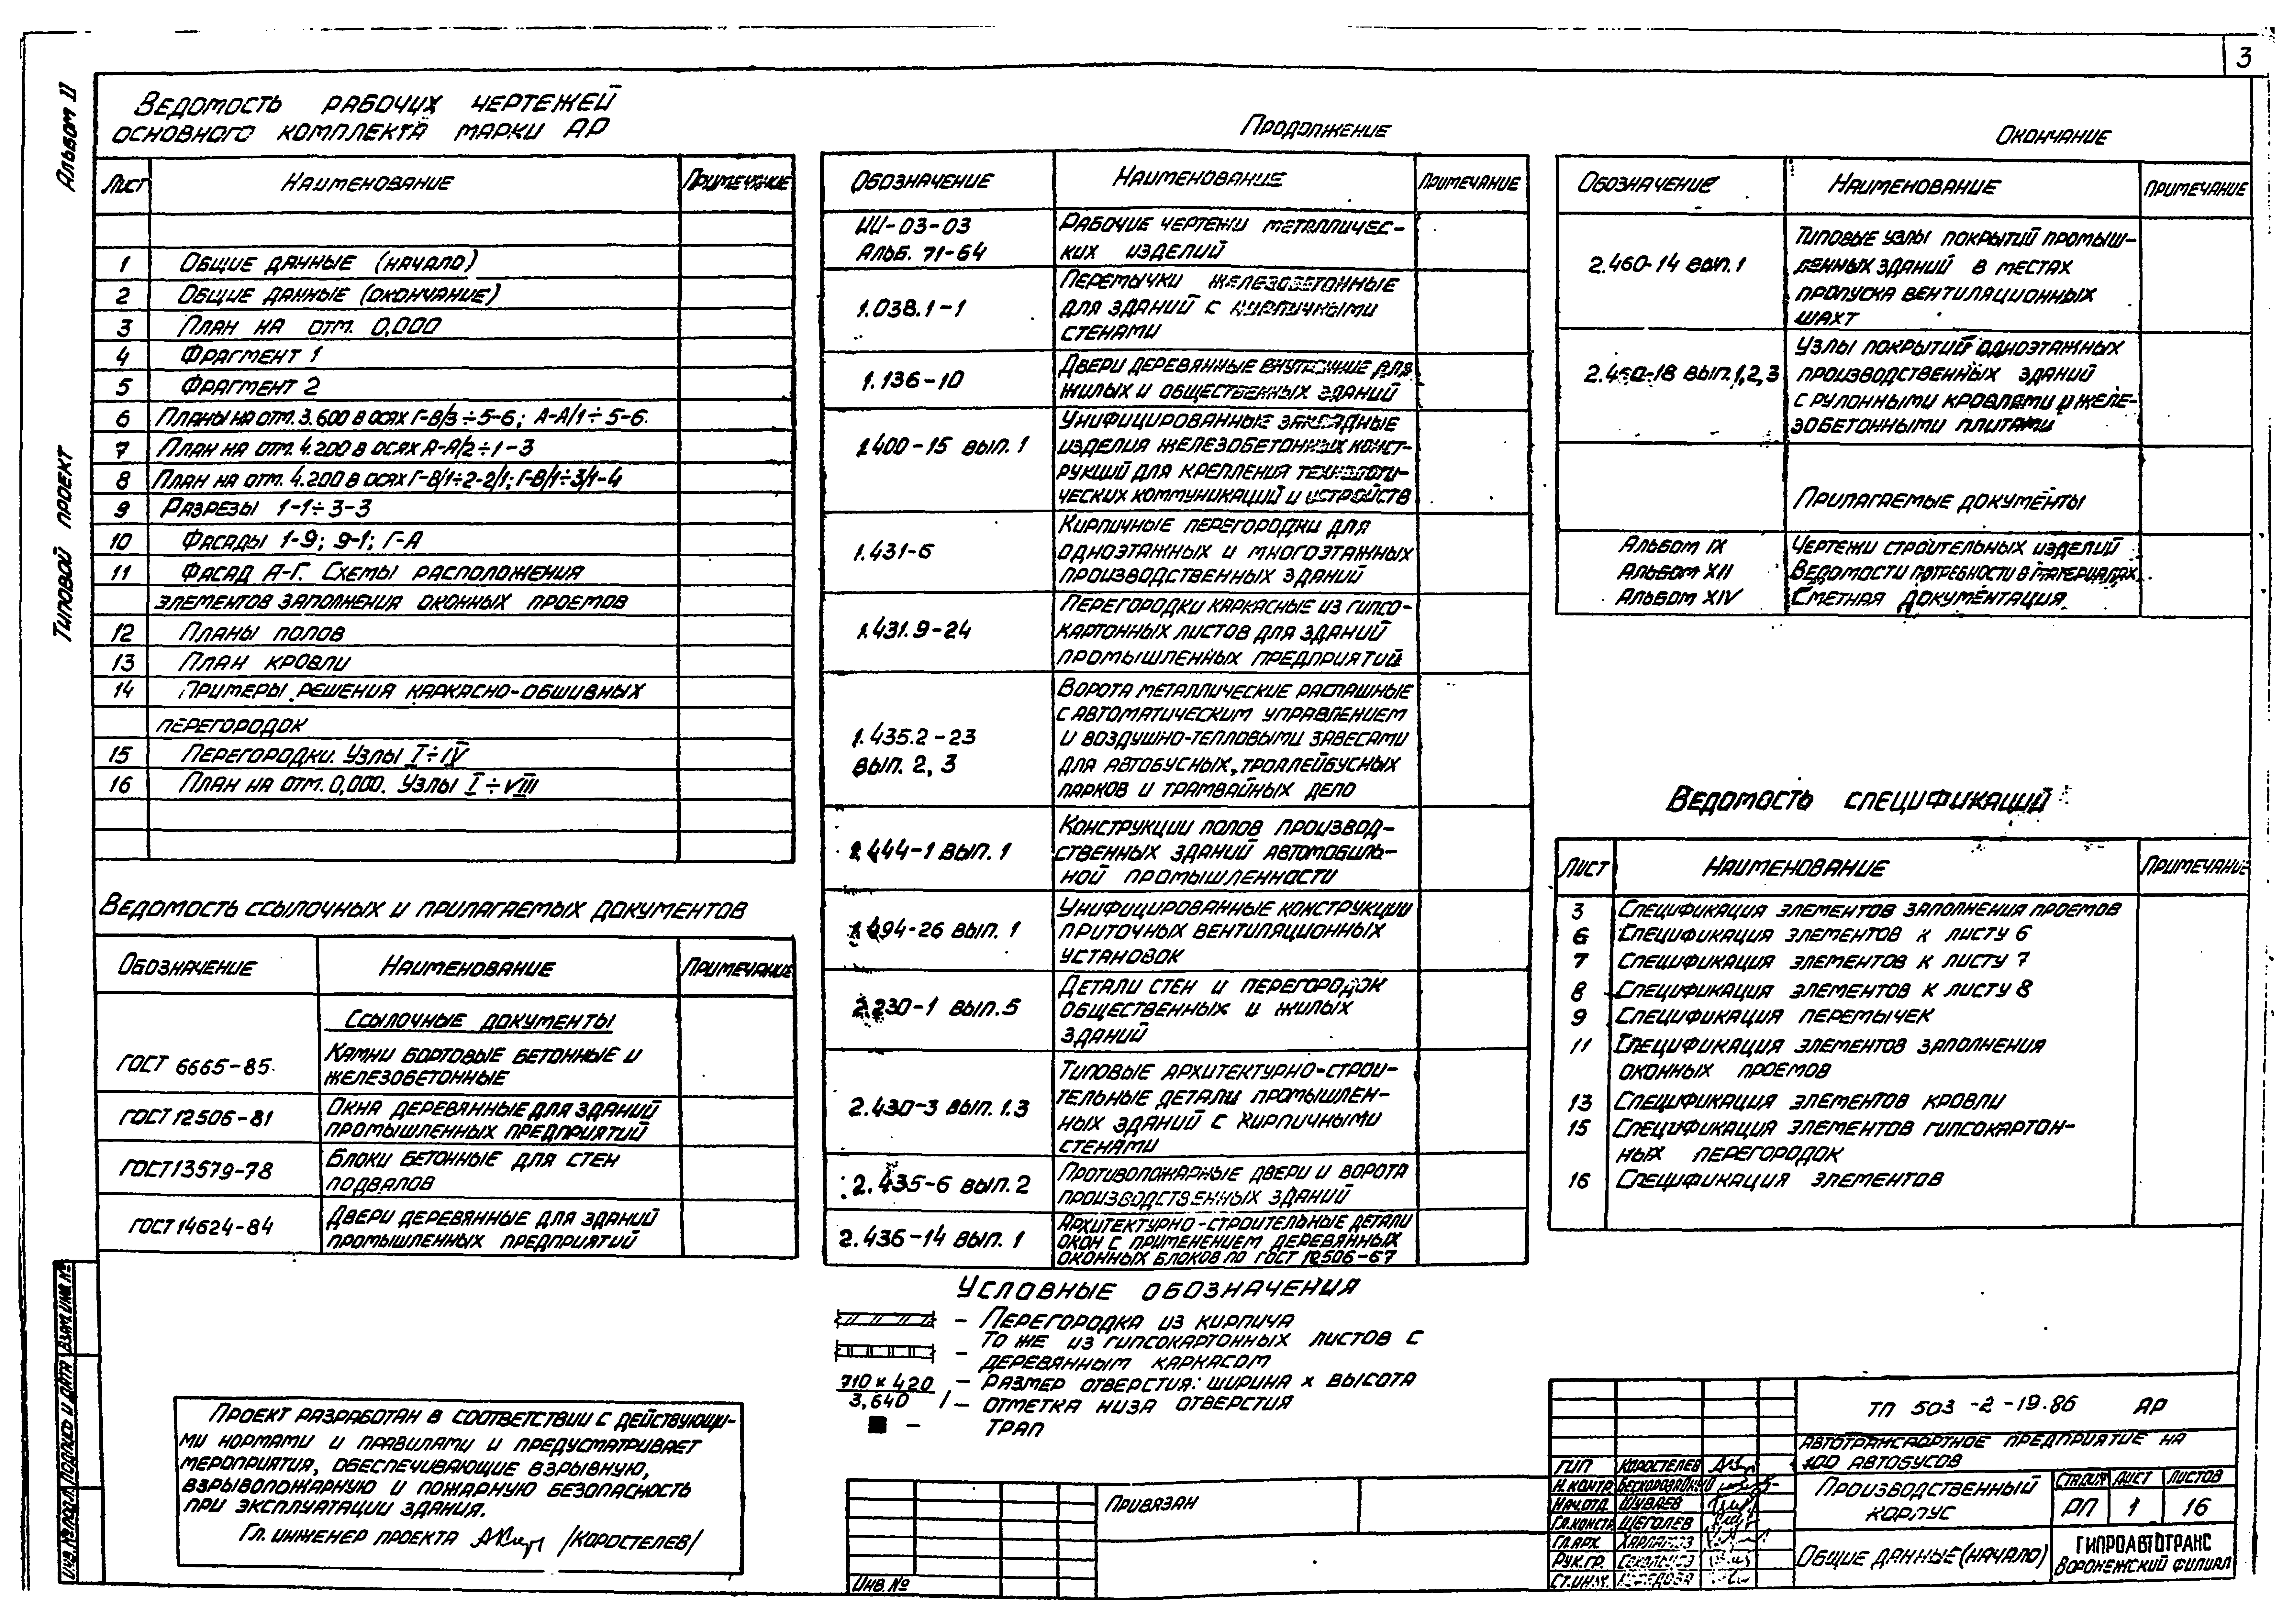 3
Альбом II
Типовой проект
Ведомость рабочих чертежей
основного комплекта марки АР
Лист Наименование Примечание
1 Общие данные (начало)
2 Общие данные (окончание)
3 План на отм. 0,000
4 Фрагмент 1
5 Фрагмент 2
6 Планы на отм. 3.600 в осях Г-В/3÷5-6; А-А/1÷5-6.
7 План на отм. 4.200 в осях А-А/2÷1-3
8 План на отм. 4.200 в осях Г-В/1÷2-2/1; Г-В/1÷3/1-4
9 Разрезы 1-1÷3-3
10 Фасады 1-9; 9-1; Г-А
11 Фасад А-Г. Схемы расположения
элементов заполнения оконных проемов
12 Планы полов
13 План кровли
14 Примеры решения каркасно-обшивных
перегородок
15 Перегородки. Узлы I÷IV
16 План на отм. 0,000. Узлы I÷VIII
Ведомость ссылочных и прилагаемых документов
Обозначение Наименование Примечание
Ссылочные документы
ГОСТ 6665-85. Камни бортовые бетонные и
железобетонные
ГОСТ 12506-81 Окна деревянные для зданий
промышленных предприятий
ГОСТ 13579-78 Блоки бетонные для стен
подвалов
ГОСТ 14624-84 Двери деревянные для зданий
промышленных предприятий
Проект разработан в соответствии с действующи-
ми нормами и правилами и предусматривает
мероприятия, обеспечивающие взрывную,
взрывопожарную и пожарную безопасность
при эксплуатации здания.
Гл. инженер проекта /Коростелев/
Продолжение
Обозначение Наименование Примечание
ИИ-03-03 Рабочие чертежи металличес-
Альб. 71-64 ких изделий
Перемычки железобетонные
1.038.1-1 для зданий с кирпичными
стенами
1.136-10 Двери деревянные внутренние для
жилых и общественных зданий
Унифицированные закладные
1.400-15 вып. 1 изделия железобетонных конст-
рукций для крепления технологи-
ческих коммуникаций и устройств
Кирпичные перегородки для
1.431-6 одноэтажных и многоэтажных
производственных зданий
Перегородки каркасные из гипсо-
1.431.9-24 картонных листов для зданий
промышленных предприятий
Ворота металлические распашные
с автоматическим управлением
1.435.2-23 и воздушно-тепловыми завесами
вып. 2, 3 для автобусных, троллейбусных
парков и трамвайных депо
Конструкции полов производ-
444-1 вып. 1 ственных зданий автомобиль-
ной промышленности
Унифицированные конструкции
494-26 вып. 1 приточных вентиляционных
установок
Детали стен и перегородок
2.230-1 вып. 5 общественных и жилых
зданий
Типовые архитектурно-строи-
2.430-3 вып. 1.3 тельные детали промышлен-
ных зданий с кирпичными
стенами
2.435-6 вып. 2 Противопожарные двери и ворота
производственных зданий
Архитектурно-строительные детали
2.436-14 вып. 1 окон с применением деревянных
оконных блоков по ГОСТ 12506-67
Условные обозначения
– Перегородка из кирпича
– То же из гипсокартонных листов с
деревянным каркасом
710 х 420 – Размер отверстия: ширина х высота
3,640 – Отметка низа отверстия
– Трап
Окончание
Обозначение Наименование Примечание
Типовые узлы покрытий промыш-
2.460-14 вып. 1 ленных зданий в местах
пропуска вентиляционных
шахт
Узлы покрытий одноэтажных
2.460-18 вып. 1, 2, 3 производственных зданий
с рулонными кровлями и желе-
зобетонными плитами
Прилагаемые документы
Альбом IX Чертежи строительных изделий
Альбом XII Ведомости потребности в материалах
Альбом XIV Сметная документация
Ведомость спецификаций
Лист Наименование Примечание
3 Спецификация элементов заполнения проемов
6 Спецификация элементов к листу 6
7 Спецификация элементов к листу 7
8 Спецификация элементов к листу 8
9 Спецификация перемычек
11 Спецификация элементов заполнения
оконных проемов
13 Спецификация элементов кровли
15 Спецификация элементов гипсокартон-
ных перегородок
16 Спецификация элементов
Взам. инв. №
Подпись и дата
Инв. № подл.
Привязан
Инв. №
ТП 503-2-19.86 АР
Автотранспортное предприятие на
100 автобусов
ГИП Коростелев
Н. контр.
Нач. отд. Шуваев
Гл. констр. Щеголев
Гл. арх.
Рук. гр.
Ст. инж.
Производственный
корпус
Стадия Лист Листов
РП 1 16
Общие данные (начало)
ГИПРОАВТОТРАНС
Воронежский филиал